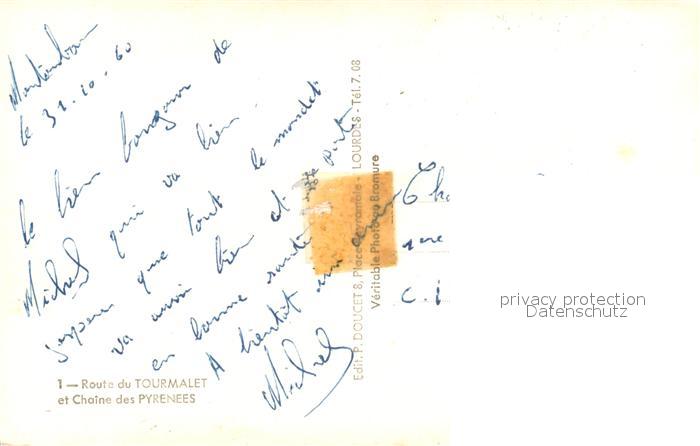 Montauban
le 31.10.60
le bien bonjour de
Michel qui va bien.
J'espère que tout le monde
va aussi bien et
en bonne santé
A bientôt
Michel
1 — Route du TOURMALET
et Chaîne des PYRENEES
Edit. P. DOUCET 8, Place Peyramale - LOURDES - Tél. 7.08
Véritable Photo au Bromure
privacy protection
Datenschutz